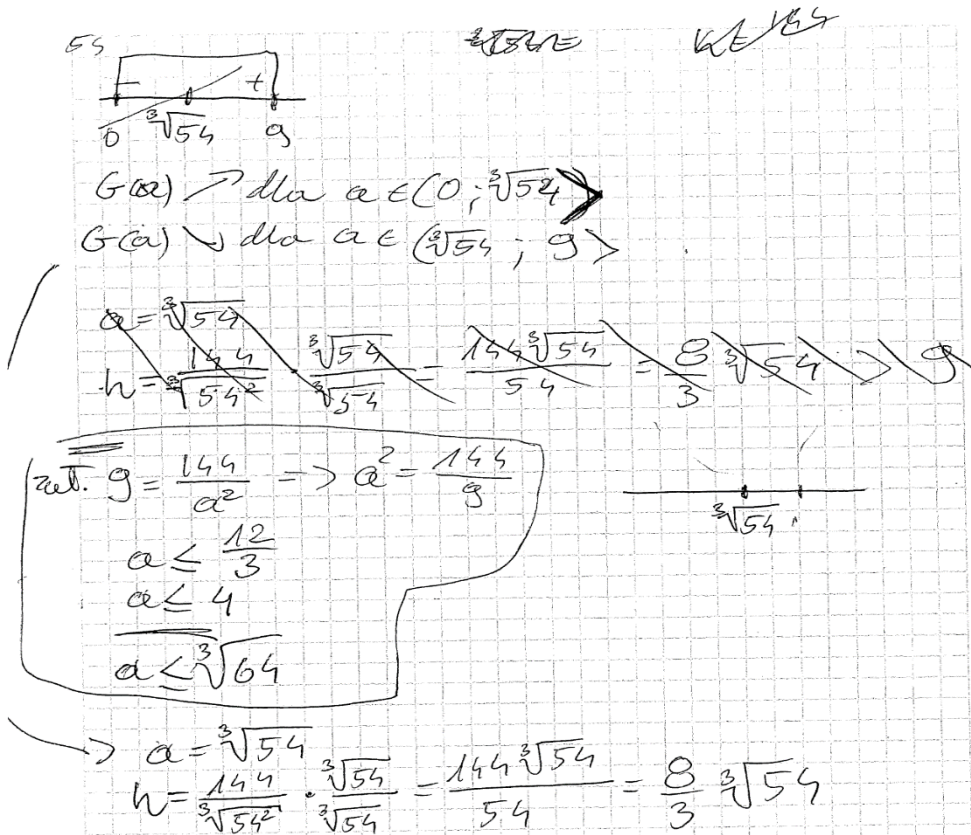 54
- +
0 ∛54 9
G(a) ↗ dla a ∈ (0; ∛54>
G(a) ↘ dla a ∈ (∛54; 9>
a = ∛54
h = 144/∛54² · ∛54/∛54 = 144∛54/54 = 8/3 ∛54 > 9
zał. 9 = 144/a² -> a² = 144/9
∛54
a ≤ 12/3
a ≤ 4
a ≤ ∛64
-> a = ∛54
h = 144/∛54² · ∛54/∛54 = 144∛54/54 = 8/3 ∛54